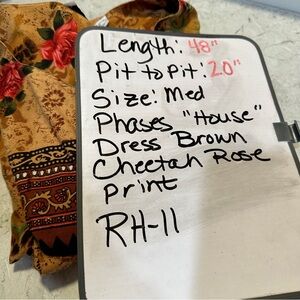 Length: 48"
Pit to Pit: 20"
Size: Med
Phases "House"
Dress Brown
Cheetah Rose
Print
RH-11